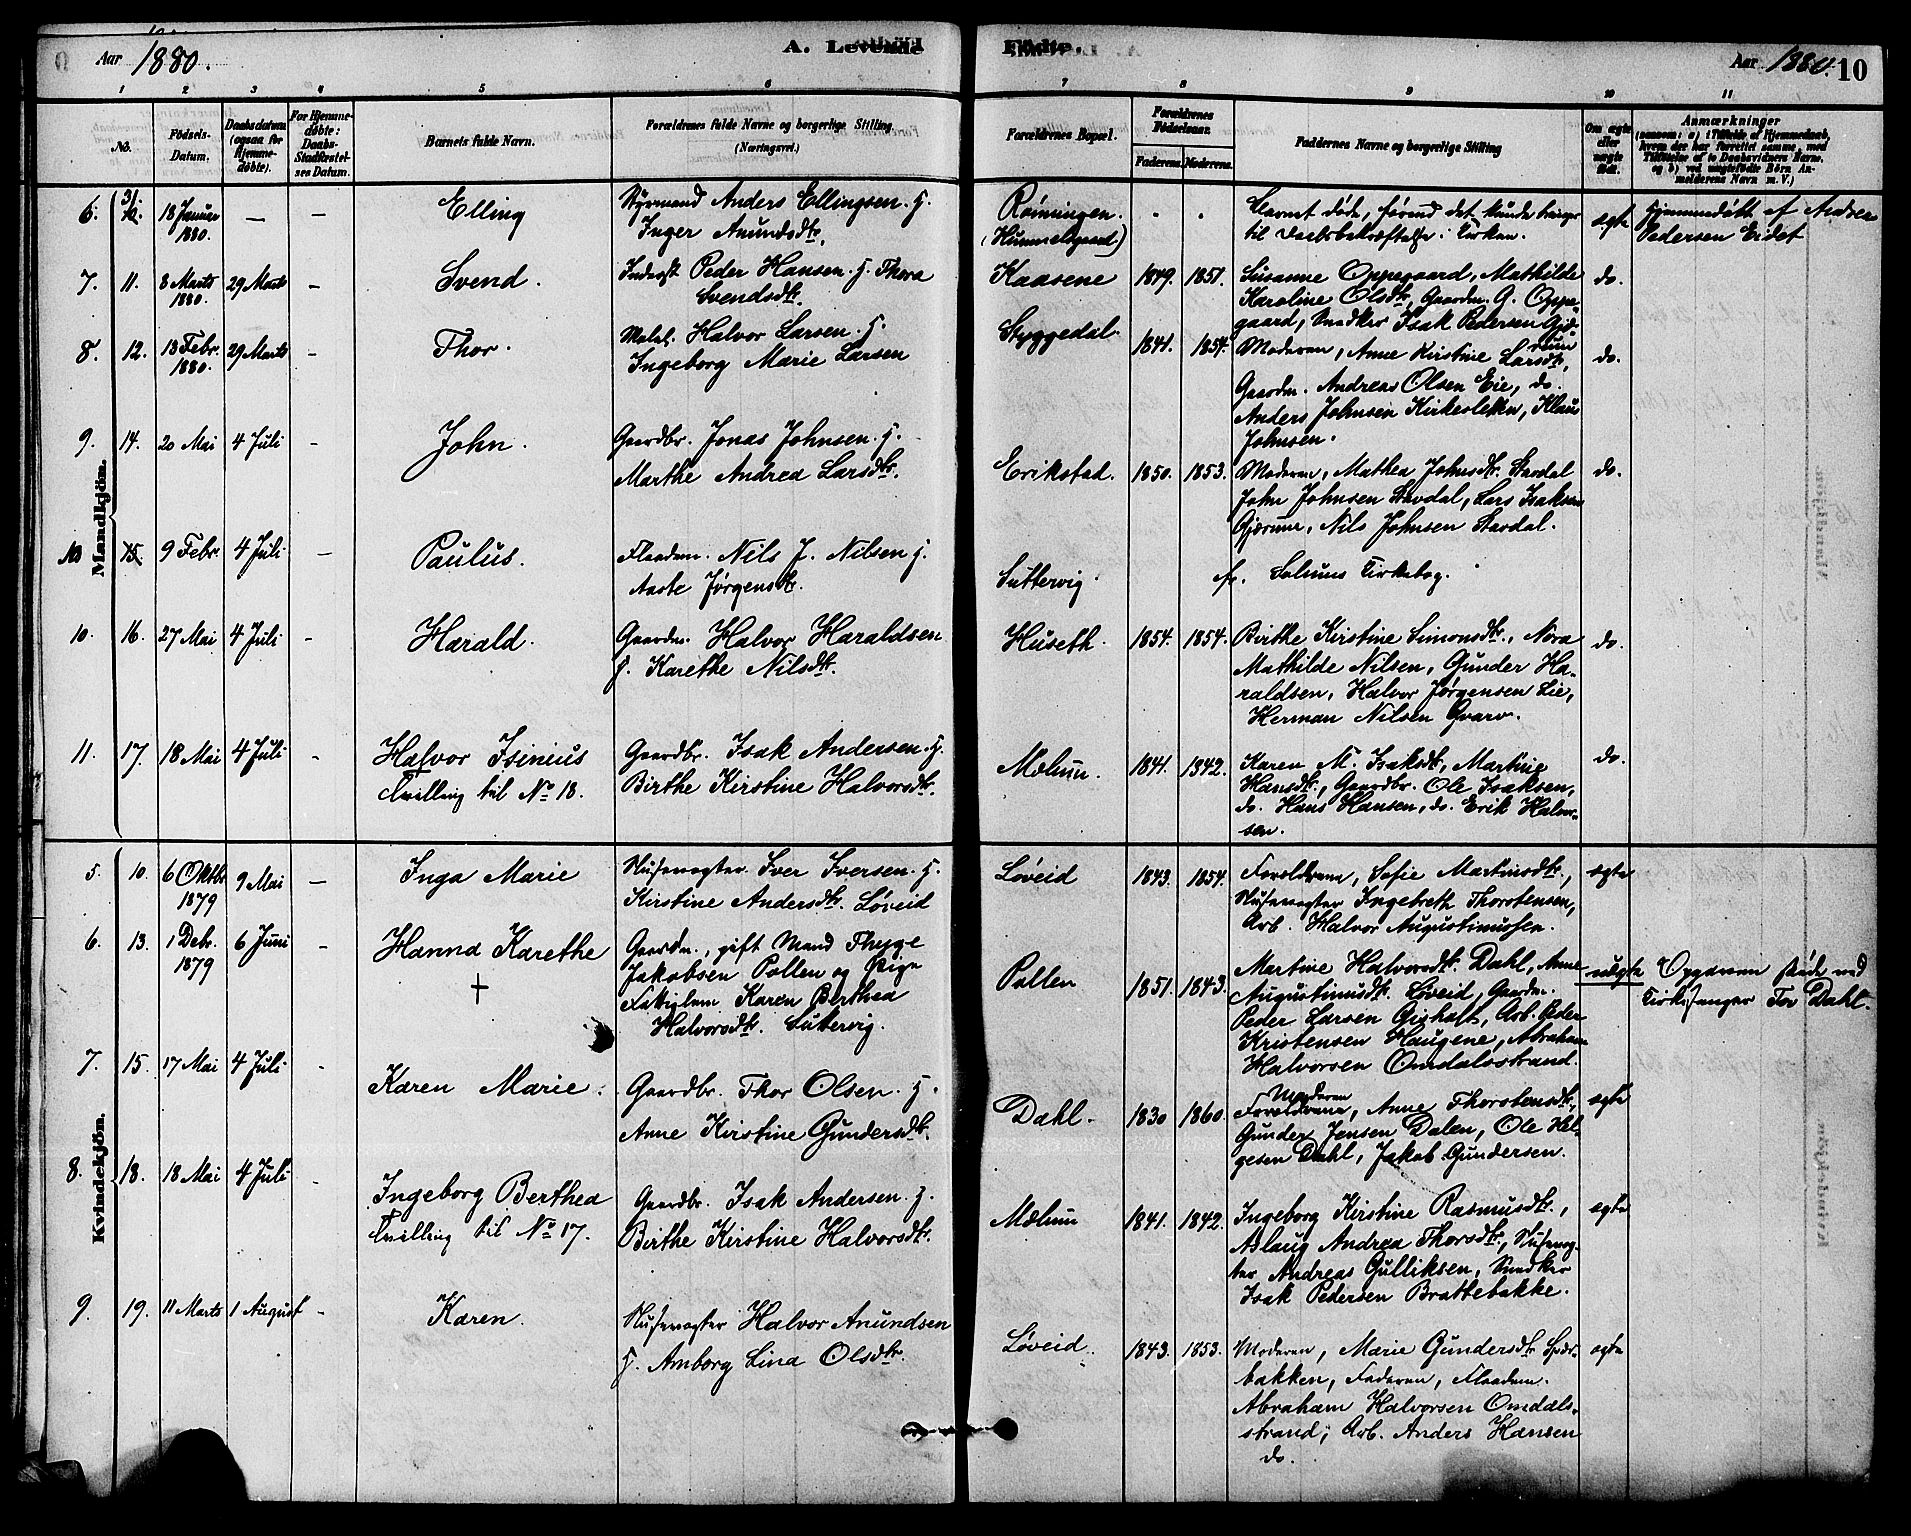 Aar 1880.
A. Levende
Fødte.
Aar 1880.
10
1 2 3 4 5 6 7 8 9 10 11
No.
Fødsels-Datum.
Daabsdatum (ogsaa for Hjemmedøbte).
For Hjemmedøbte: Daabs-Stadfæstelses Datum.
Barnets fulde Navn.
Forældrenes fulde Navne og borgerlige Stilling
(Næringsvei).
Forældrenes Bopæl.
Forældrenes Fødselsaar.
Faderens. Moderens.
Faddernes Navne og borgerlige Stilling
Om ægte eller uægte født.
Anmærkninger
(saasom: a) i Tilfælde af Hjemmedaab, hvem der har forrettet samme, med Tilføielse af to Daabsvidners Navne, og b) ved uægtefødte Børn Anmelderens Navn m. V.)
Mandkjön.
6. 18 Januar 1880. — — Elling
Styrmand Anders Ellingsen. H.
Inger Anundsdtr.
Røiningen.
(Hummelsgaard)
Barnet døde, førend det kunde bringes
til Daabsbekræftelse i Kirken.
ægte
Hjemmedøbt af Andrea
Pedersen Eidet
7. 11. 8 Marts 1880. 29 Marts – Svend.
Inderst Peder Hansen. H. Thora
Svendsdtr.
Kaasene 1849. 1851.
Susanne Oppegaard, Mathilde
Karoline Olsdtr, Gaardm. G. Oppe
gaard, Snedker Isak Pedersen Gjæ-
rum
do.
8. 12. 13 Febr. 1880. 29 Marts – Thor.
Matel. Halvor Larsen. H.
Ingeborg Marie Larsen
Styggedal 1841. 1854.
Moderen, Anne Kirstine Larsdtr,
Gaardm. Andreas Olsen Eie, do.
Anders Johnsen Kirkerleken, Klaus
Johnsen.
do.
9. 14. 20 Mai 4 Juli – John.
Gaardbr. Jonas Johnsen. H.
Marthe Andrea Larsdtr.
Erikstad. 1850. 1853.
Moderen, Mathea Johnsdtr. Stavdal
John Johnsen Stavdal, Lars Isaksen
Gjærum, Nils Johnsen Stavdal.
do.
15. 9 Febr. 4 Juli – Paulus.
Flaadem. Nils J. Nilsen H.
Aaste Jørgensdtr.
Suttervig.
cfr. Solums Kirkebog.
10. 16. 27 Mai 4 Juli – Harald.
Gaardm. Halvor Haraldsen
H. Karethe Nilsdtr.
Huseth. 1854. 1854.
Birthe Kirstine Simonsdtr., Nora
Mathilde Nilsen, Gunder Ha-
raldsen, Halvor Jørgensen Lie,
Herman Nilsen Gvarv.
do.
11. 17. 18 Mai 4 Juli – Halvor Isinius
Tvilling til No 18.
Gaardbr. Isak Andersen. H.
Birthe Kirstine Halvorsdtr.
Mælum. 1841. 1842.
Karen M. Isaksdtr, Martine
Hansdtr., Gaardbr. Ole Isaksen,
do. Hans Hansen, do. Erik Halvor-
sen.
do.
Kvindekjön.
5. 10. 6 Oktbr 1879 9 Mai — Inga Marie
Slusevogter Iver Iversen. H.
Kirstine Andersdtr. Løveid
Løveid 1843. 1854.
Forældrene, Sofie Martinsdtr,
Slusevogter Ingebreth Thorstensen,
Arb. Halvor Augustinussen.
ægte
6. 13. 1 Debr. 1879 6 Juni – Hanna Karethe
+
Gaardm., gift Mand Thyge
Jakobsen Pollen og Pige
Fattiglem Karen Berthea
Halvorsdtr. Suttervig.
Pollen 1851. 1843.
Martine Halvorsdtr. Dahl, Anne
Augustinusdtr. Løveid, Gaardm.
Peder Larsen Gisholt, Arb. Peder
Kristensen Haugene, Abraham
Halvorsen Omdalsstrand.
uægte
Opgaven skede ved
Kirkesanger Tov Dahl.
7. 15. 17 Mai 4 Juli – Karen Marie.
Gaardbr. Thor Olsen. H.
Anne Kirstine Gundersdtr.
Dahl. 1830 1860.
Moderen
Forældrene, Anne Thorstensdtr.,
Gunder Jensen Dalen, Ole Hel-
gesen Dahl, Jakob Gundersen.
ægte
8. 18. 18 Mai 4 Juli – Ingeborg Berthea
Tvilling til No 17.
Gaardbr. Isak Andersen. H.
Birthe Kirstine Halvorsdtr.
Mælum 1841. 1842.
Ingeborg Kirstine Rasmusdtr.,
Aslaug Andrea Thorsdtr., Slusevog-
ter Andreas Gulliksen, Snedker
Isak Pedersen Brattebakke.
ægte
9. 19. 11 Marts 1 August – Karen.
Slusevogter Halvor Anundsen
H. Amborg Lina Olsdtr.
Løveid. 1843. 1853.
Moderen, Marie Gundersdtr. Spær-
bakken, Faderen, Flaadem.
Abraham Halvorsen Omdals-
strand, Arb. Anders Hansen
do.
ægte